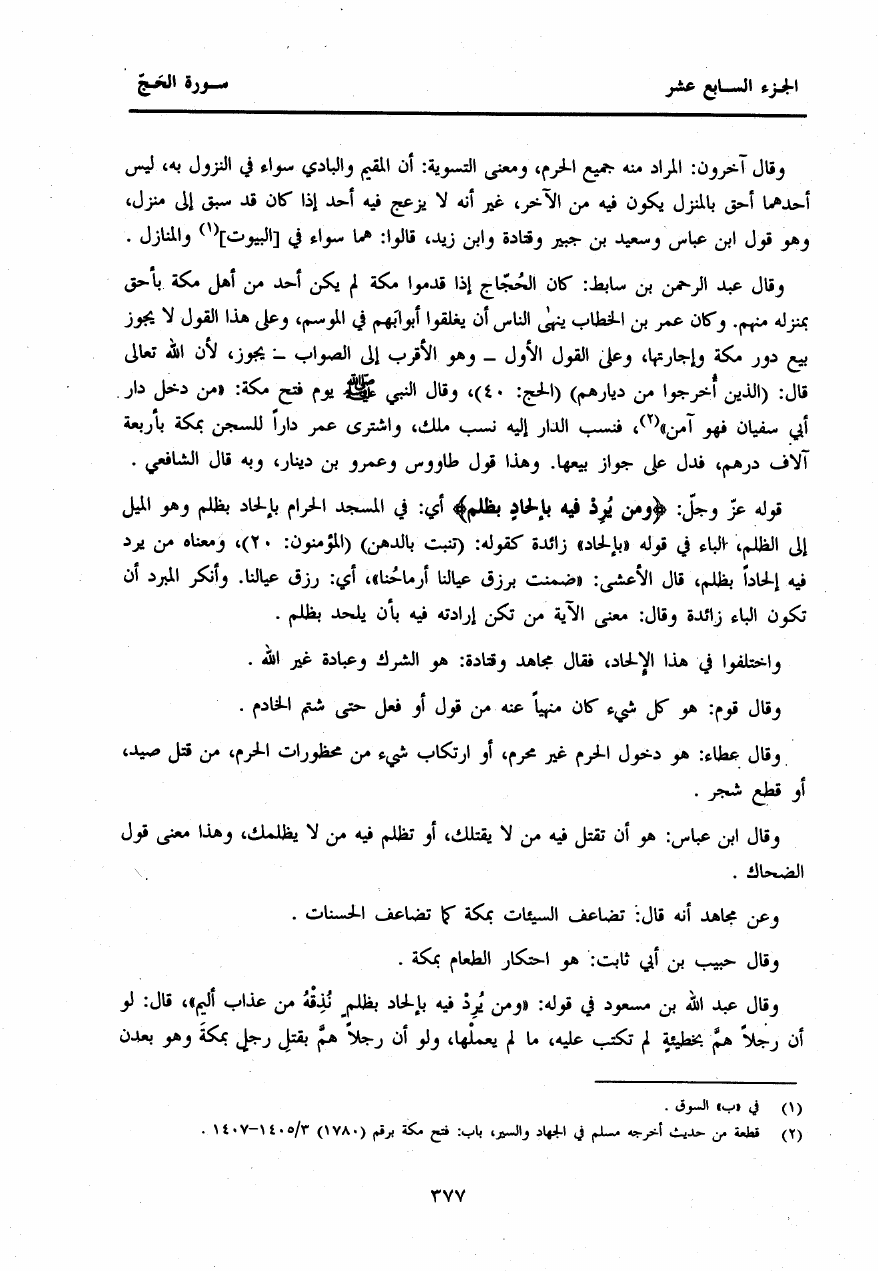 الجزء السابع عشر
سورة الحَجّ
وقال آخرون: المراد منه جميع الحرم، ومعنى التسوية: أن المقيم والبادي سواء في النزول به، ليس
أحدهما أحق بالمنزل يكون فيه من الآخر، غير أنه لا يزعج فيه أحد إذا كان قد سبق إلى منزل،
وهو قول ابن عباس وسعيد بن جبير وقتادة وابن زيد، قالوا: هما سواء في [البيوت](١) والمنازل .
وقال عبد الرحمن بن سابط: كان الحُجّاج إذا قدموا مكة لم يكن أحد من أهل مكة بأحق
بمنزله منهم. وكان عمر بن الخطاب ينهٰى الناس أن يغلقوا أبوابَهم في الموسم، وعلى هذا القول لا يجوز
بيع دور مكة وإجارتها، وعلى القول الأول ــ وهو الأقرب إلى الصواب ــ يجوز، لأن الله تعالى
قال: (الذين أُخرجوا من ديارهم) (الحج: ٤٠)، وقال النبي ﷺ يوم فتح مكة: «من دخل دار
أبي سفيان فهو آمن»(٢)، فنسب الدار إليه نسب ملك، واشترى عمر داراً للسجن بمكة بأربعة
آلاف درهم، فدل على جواز بيعها. وهذا قول طاووس وعمرو بن دينار، وبه قال الشافعي .
قوله عزّ وجلّ: ﴿ومن يُرِدْ فيه بإلحادٍ بظلم﴾ أي: في المسجد الحرام بإلحاد بظلم وهو الميل
إلى الظلم، الباء في قوله «بإلحاد» زائدة كقوله: (تنبت بالدهن) (المؤمنون: ٢٠)، ومعناه من يرد
فيه إلحاداً بظلم، قال الأعشى: «ضمنت برزق عيالنا أرماحُنا»، أي: رزق عيالنا. وأنكر المبرد أن
تكون الباء زائدة وقال: معنى الآية من تكن إرادته فيه بأن يلحد بظلم .
واختلفوا في هذا الإلحاد، فقال مجاهد وقتادة: هو الشرك وعبادة غير الله .
وقال قوم: هو كل شيء كان منهياً عنه من قول أو فعل حتى شتم الخادم .
وقال عطاء: هو دخول الحرم غير محرم، أو ارتكاب شيء من محظورات الحرم، من قتل صيد،
أو قطع شجر .
وقال ابن عباس: هو أن تقتل فيه من لا يقتلك، أو تظلم فيه من لا يظلمك، وهذا معنى قول
الضحاك .
وعن مجاهد أنه قال: تضاعف السيئات بمكة كما تضاعف الحسنات .
وقال حبيب بن أبي ثابت: هو احتكار الطعام بمكة .
وقال عبد الله بن مسعود في قوله: «ومن يُرِدْ فيه بإلحاد بظلمٍ نُذِقْهُ من عذاب أليم»، قال: لو
أن رجلاً همَّ بخطيئةٍ لم تكتب عليه، ما لم يعملْها، ولو أن رجلاً همَّ بقتلِ رجلٍ بمكةَ وهو بعدن
(١) في «ب» السوق .
(٢) قطعة من حديث أخرجه مسلم في الجهاد والسير، باب: فتح مكة برقم (١٧٨٠) ١٤٠٥/٣–١٤٠٧ .
٣٧٧